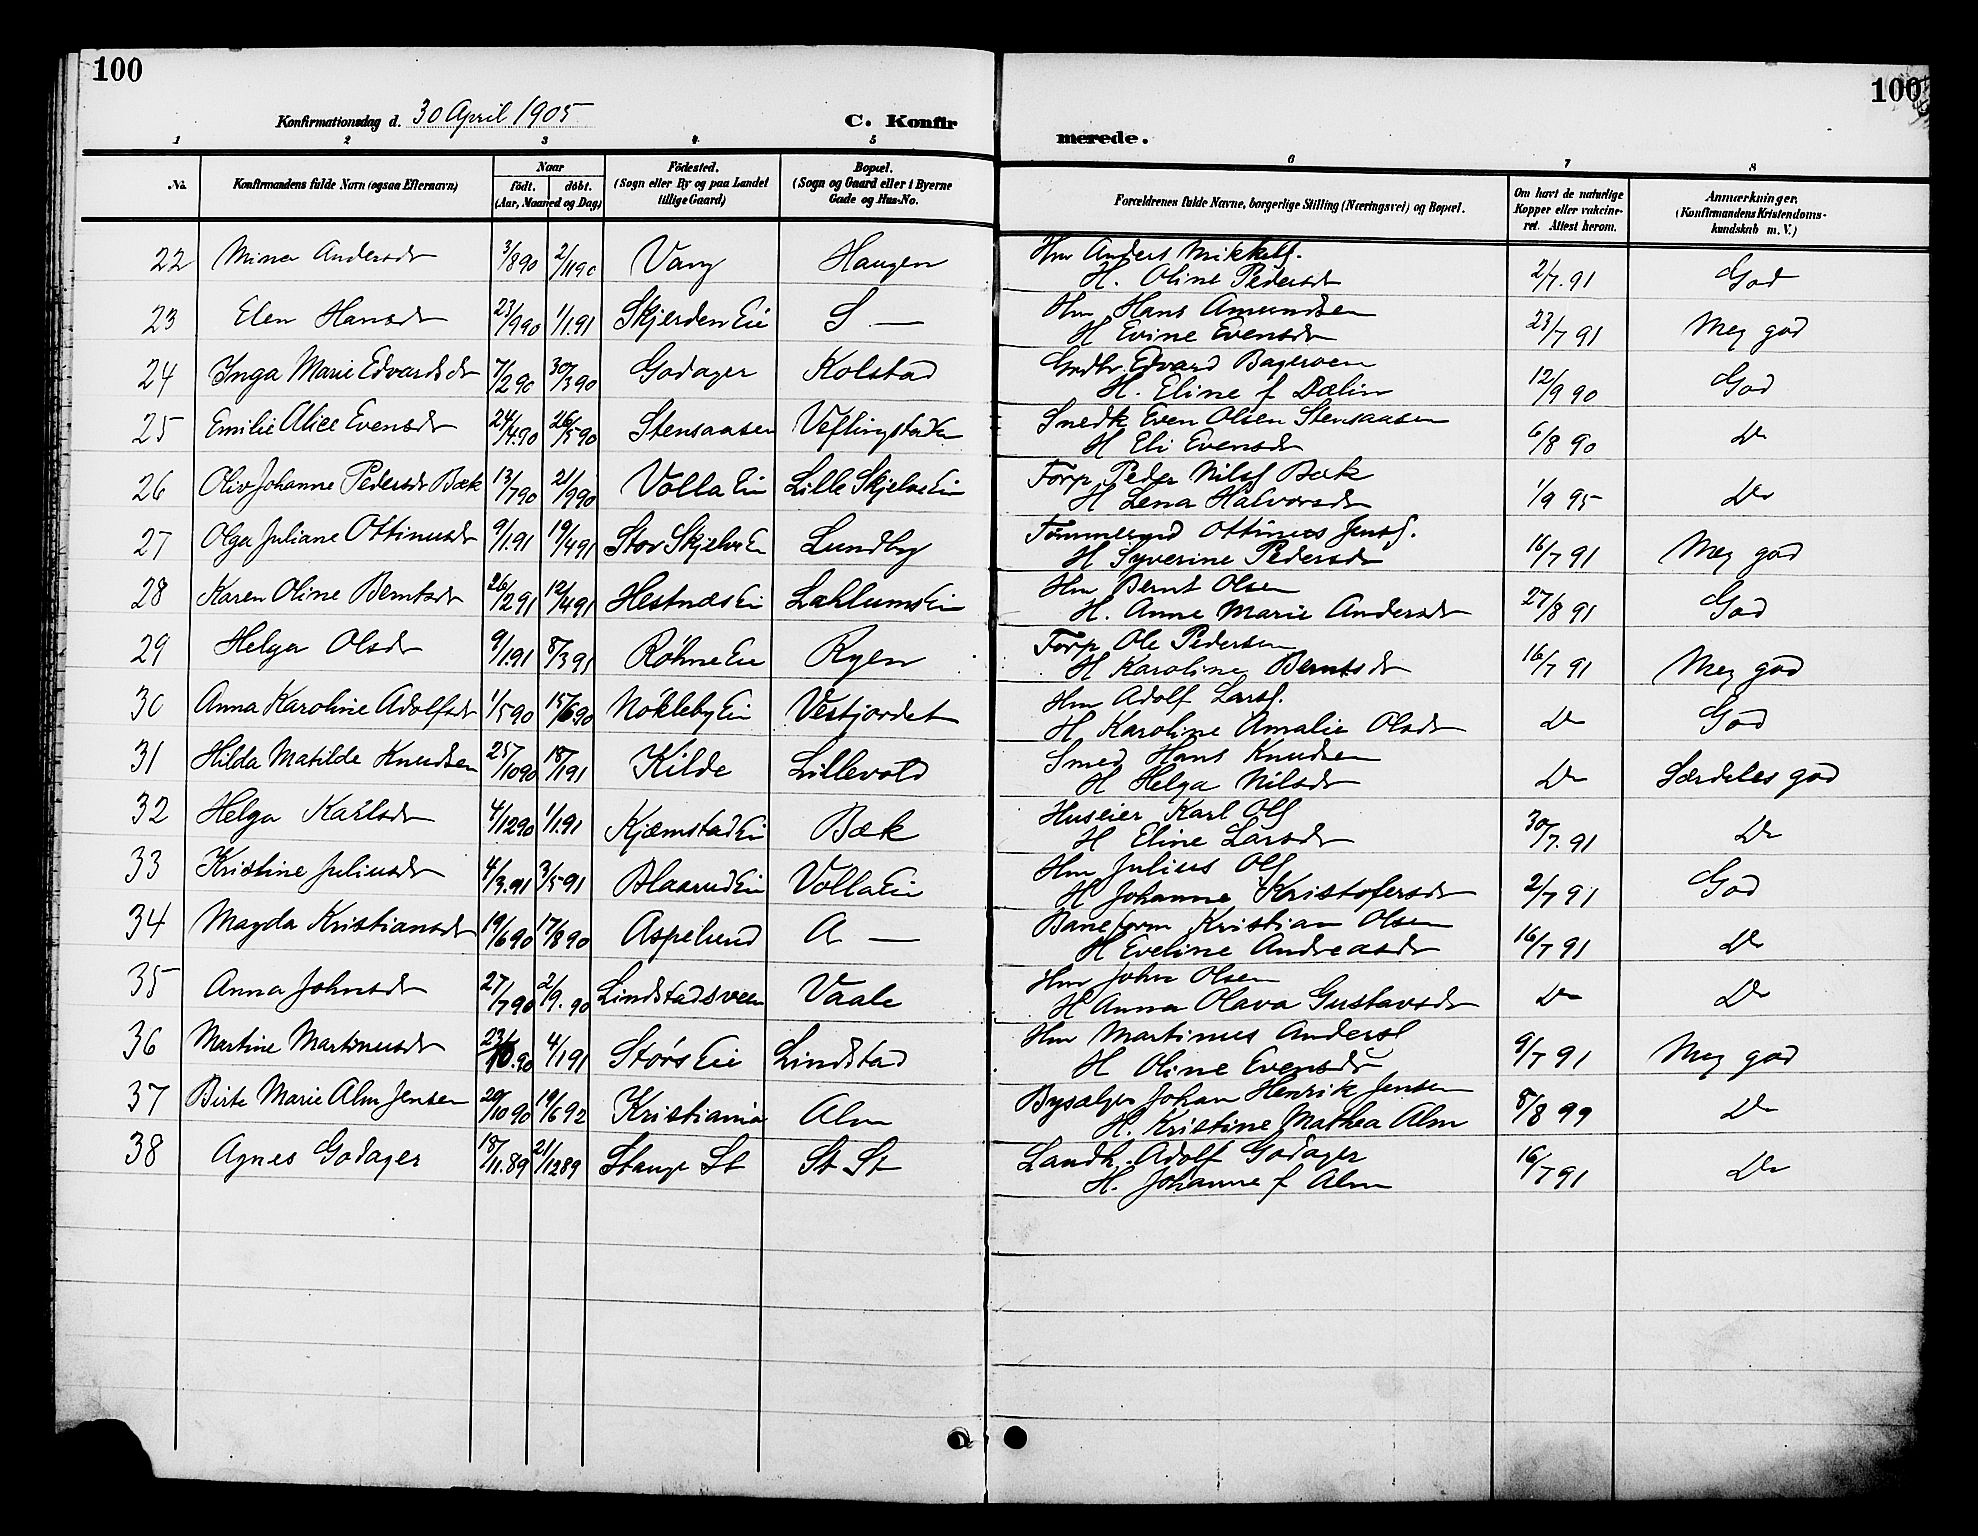 100
100
Konfirmationsdag d. 30 April 1905
C. Konfirmerede.
1 2 3 4 5 6 7 8
No. Konfirmandens fulde Navn (ogsaa Efternavn) Naar født. døbt. (Aar, Maaned og Dag) Fødested. (Sogn eller By og paa Landet tillige Gaard) Bopæl. (Sogn og Gaard eller i Byerne Gade og Hus-No. Forældrenes fulde Navne, borgerlige Stilling (Næringsvei) og Bopæl. Om havt de naturlige Kopper eller vakcineret. Attest herom. Anmærkninger. (Konfirmandens Kristendomskundskab m. V.)
22 Mina Andersdr 3/8 90 2/11 90 Vang Haugen Hm Anders Mikkels. 2/7. 91 God
H. Oline Pedersdr
23 Elen Hansdr 23/9 90 1/1 91 Skjerden Eie S — Hm Hans Amundsen 23/7 91 Meg god
H Evine Evensdr
24 Inga Marie Edvardsdr 7/2 90 30/3 90 Godager Kolstad Gndbr. Edvard Bageroen 12/9 90 God
H. Eline f Dælin
25 Emilie Alice Evensdr 24/4 90 26/5 90 Stensaasen Veflingstad Ei Snedk Even Olsen Stensaasen 6/8 90 Do
H Eli Evensdr
26 Oliv Johanne Pedersdr Bæk 13/7 90 21/9 90 Volla Ei Lille Skjelve Ei Forp. Peder Nilsf Bæk 1/9 95 Do
H Lena Halvorsdr
27 Olga Juliane Ottinusdr 9/1 91 19/4 91 Stor Skjelve Ei Lundby Tømmermd Ottinus Jensf. 16/7 91 Meg god
H Syverine Pedersdr
28 Karen Oline Berntsdr 26/2 91 12/4 91 Hestnæs Ei Lahlums Ei Hm Bernt Olsen 27/8 91 God
H. Anne Marie Andersdr
29 Helga Olsdr 9/1 91 8/3 91 Röhne Eie Ryen Forp Ole Pedersen 16/7 91 Meg god
H Karoline Berntsdr
30 Anna Karoline Adolfsdr 1/5 90 15/6 90 Nökleby Ei Vestjordet Hm Adolf Larsf. Do God
H Karoline Amalie Olsdr
31 Hilda Matilde Knudsen 25/10 90 18/1 91 Kilde Lillevold Smed Hans Knudsen Do Særdeles god
H Helga Nilsdr
32 Helga Karlsdr 4/12 90 1/1 91 Kjæmstad Ei Bæk Huseier Karl Olf 30/7. 91 Do
H Eline Larsdr
33 Kristine Juliusdr 4/3. 91 3/5 91 Blaarud Ei Volla Eie Hm Julius Olf 2/7 91 God
H Johanne Kristofersdr
34 Magda Kristiansdr 19/6 90 17/8 90 Aspelund A — Baneform Kristian Olsen 16/7 91 Do
H Eveline Andreasdr
35 Anna Johnsdr 27/7 90 2/9. 90 Lindstadsveen Vaale Hm John Olsen Do Do
H Anna Olava Gustavsdr
36 Martine Martinusdr 23/10. 90 4/1 91 Störs Eie Lindstad Hm Martinus Andersf 9/7 91 Meg god
H Oline Evensdr
37 Birte Marie Alm Jensen 20/10 90 19/6 92 Kristiania Alm Bysælger Johan Henrik Jensen 8/8 99 Do
H. Kristine Mathea Alm
38 Agnes Godager 18/11. 89 21/12 89 Stange St St St Landh. Adolf Godager 16/7 91 Do
H. Johanne f Alm